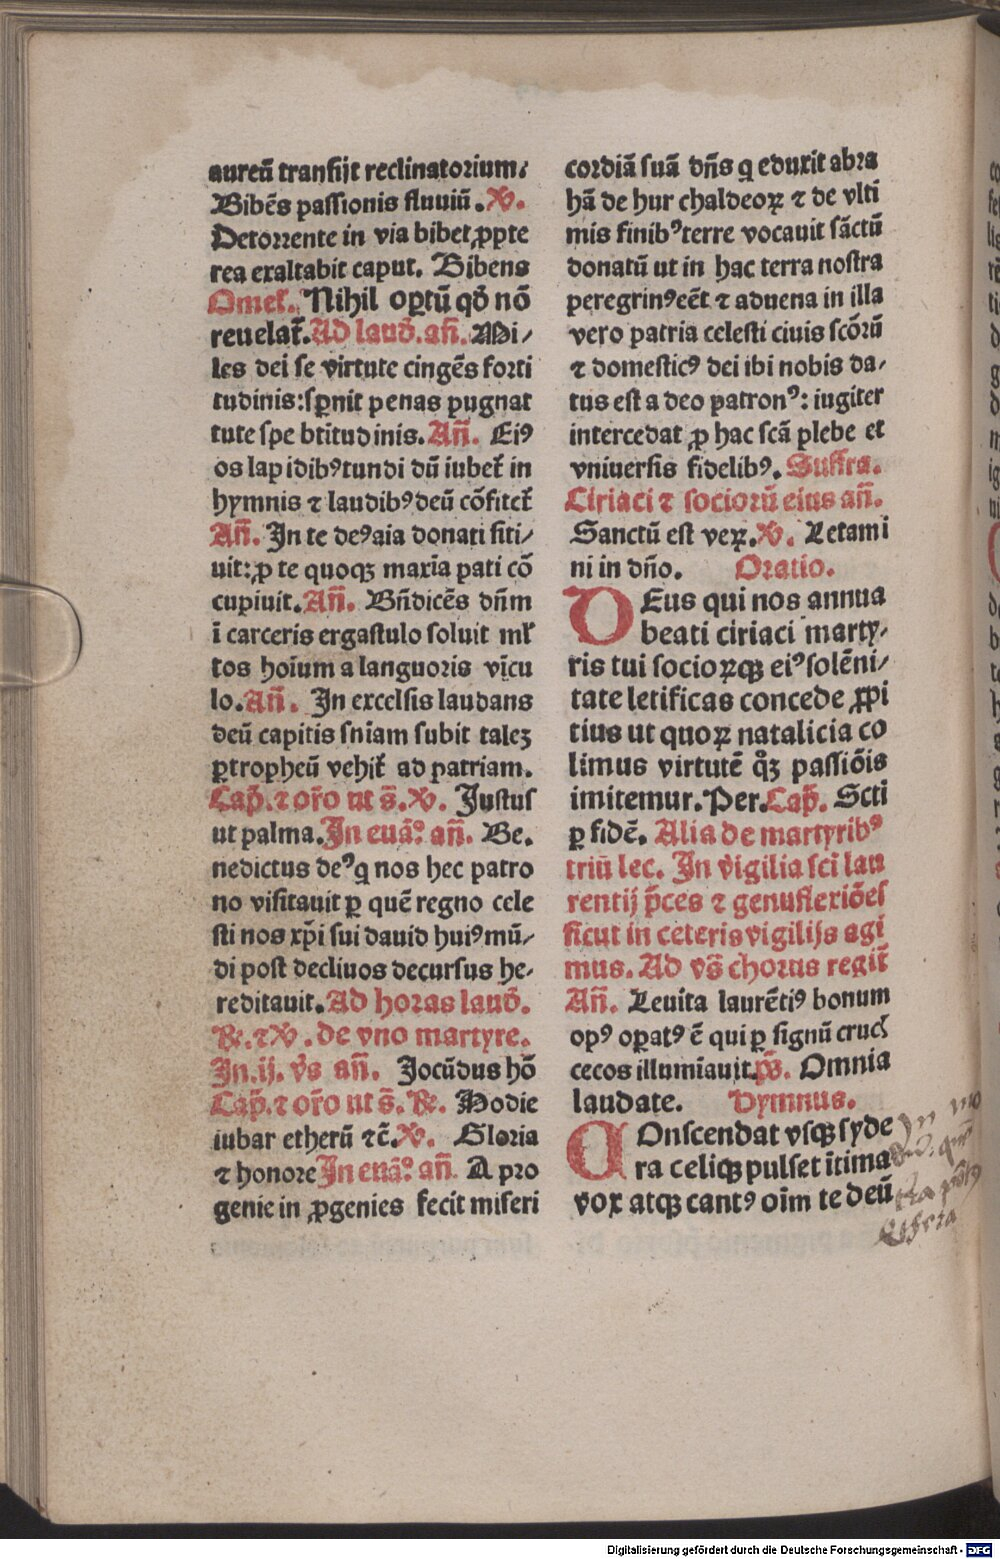 aureū tranſijt reclinatorium⹎
Bibēs paſſionis fluuiū. ℣.
Detorrente in via bibet ꝓpte
rea exaltabit caput. Bibens
Omel̄. Nihil opꝉtū qd̄ nō
reuelat̄. Ad laud̄. añ. Mi⸗
les dei ſe virtute cingēs forti
tudinis: ſꝑnit penas pugnat
tute ſpe btitudinis. Añ. Eiꝰ
os lapidibꝰ tundi dū iubet̄ in
hymnis ⁊ laudibꝰ deū cōfitet̄
Añ. In te deꝰ aīa donati ſiti⸗
uit: ꝓ te quoqꝫ maxīa pati cō
cupiuit. Añ. Bñdicēs dñm
ī carceris ergaſtulo ſoluit ml̄
tos hoīum a languoris vīcu
lo. Añ. In excelſis laudans
deū capitis ſnīam ſubit talē
ꝑ tropheū vehit̄ ad patriam.
Cap̄. ⁊ or̄o ut s̄. ℣. Juſtuſ
ut palma. In euā°. añ. Be⸗
nedictus deꝰ q nos hec patro
no viſitauit ꝑ quē regno cele
ſti nos xp̄i ſui dauid huiꝰ mū⸗
di poſt decliuos decurſus he⸗
reditauit. Ad horas laud̄.
℟. ⁊ ℣. de vno martyre.
In. ij. vs̄ añ. Jocūdus hō
Cap̄. ⁊ or̄o ut s̄. ℟. Hodie
iubar etherū ⁊c̄. ℣. Gloria
⁊ honore In euā°. añ. A pro
genie in ꝓgenies fecit miſeri
cordiā ſuā dñs q eduxit abra
hā de hur chaldeoꝝ ⁊ de vlti
mis finibꝰ terre vocauit ſāctū
donatū ut in hac terra noſtra
peregrinꝰ eēt ⁊ aduena in illa
vero patria celeſti ciuis ſcōrū
⁊ domeſticꝰ dei ibi nobis da⸗
tus eſt a deo patronꝰ: iugiter
intercedat ꝓ hac ſcā plebe et
vniuerſis fidelibꝰ. Suffra.
Ciriaci ⁊ ſociorū eius añ.
Sanctū eſt veꝝ. ℣. Letami
ni in dño. Oratio.
DEus qui nos annua
beati ciriaci marty⸗
ris tui ſocioꝝqꝫ eiꝰ ſolēni⸗
tate letificas concede ꝓpi
tius ut quoꝝ natalicia co
limus virtutē qͦꝫ paſſiōis
imitemur. Per. Cap̄. Scti
ꝑ fidē. Alia de martyribꝰ
triū lec. In vigilia ſci lau
rentij p̄ces ⁊ genuflexiōeſ
ſicut in ceteris vigilijs agi
mus. Ad vs̄ chorus regit̄
Añ. Leuita laurētiꝰ bonum
opꝰ oꝑatꝰ ē qui ꝑ ſignū crucꝭ
cecos illumīauit. ps̄. Omnia
laudate. Hymnus.
COnſcendat vſqꝫ ſyde
ra celiqꝫ pulſet ītima
vox atqꝫ cantꝰ oīm te deū
Digitalisierung gefördert durch die Deutsche Forschungsgemeinschaft - DFG